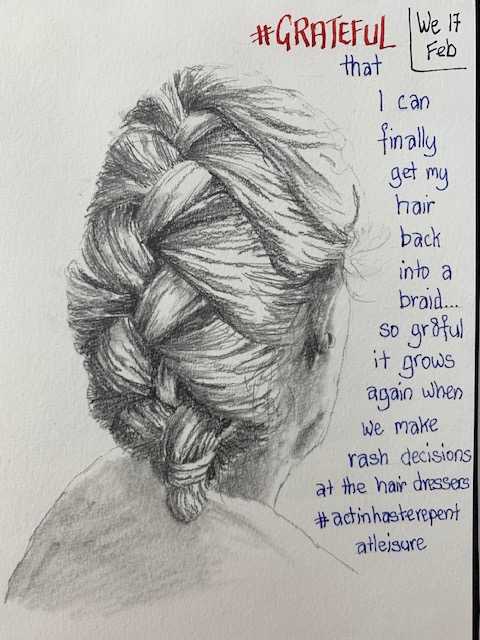 #GRATEFUL
We 17
Feb
that
I can
finally
get my
hair
back
into a
braid...
so gr8ful
it grows
again when
we make
rash decisions
at the hair dressers
#actinhasterepent
atleisure